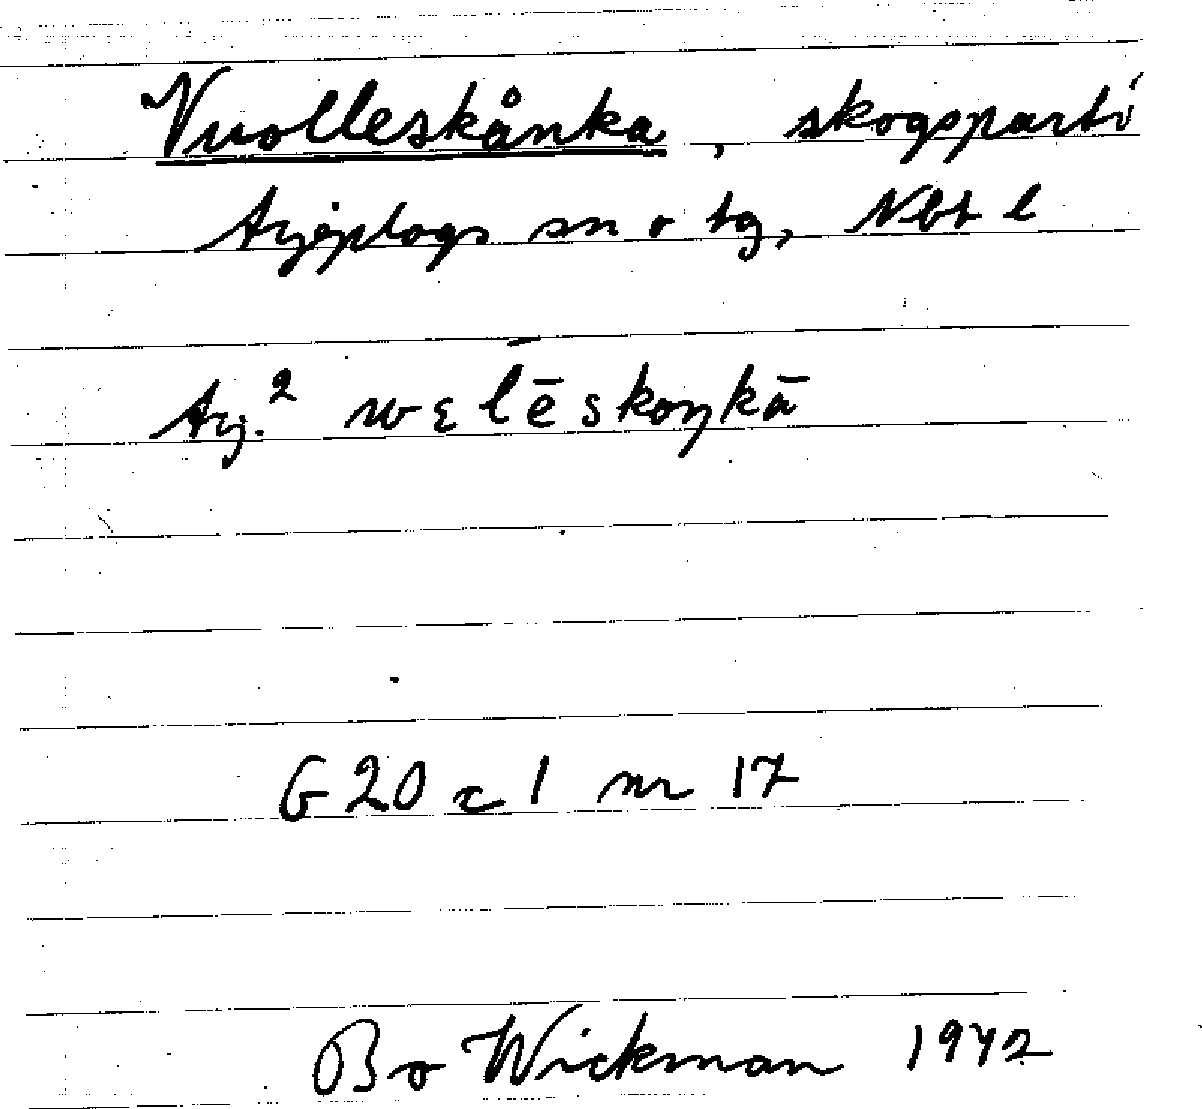 Vuolleskånka, skogsparti
Arjeplogs sn o tg, Nbt l
Arj.² wεl̄ēskoŋkā
G 20 c 1 nr 17
Bo Wickman 1942